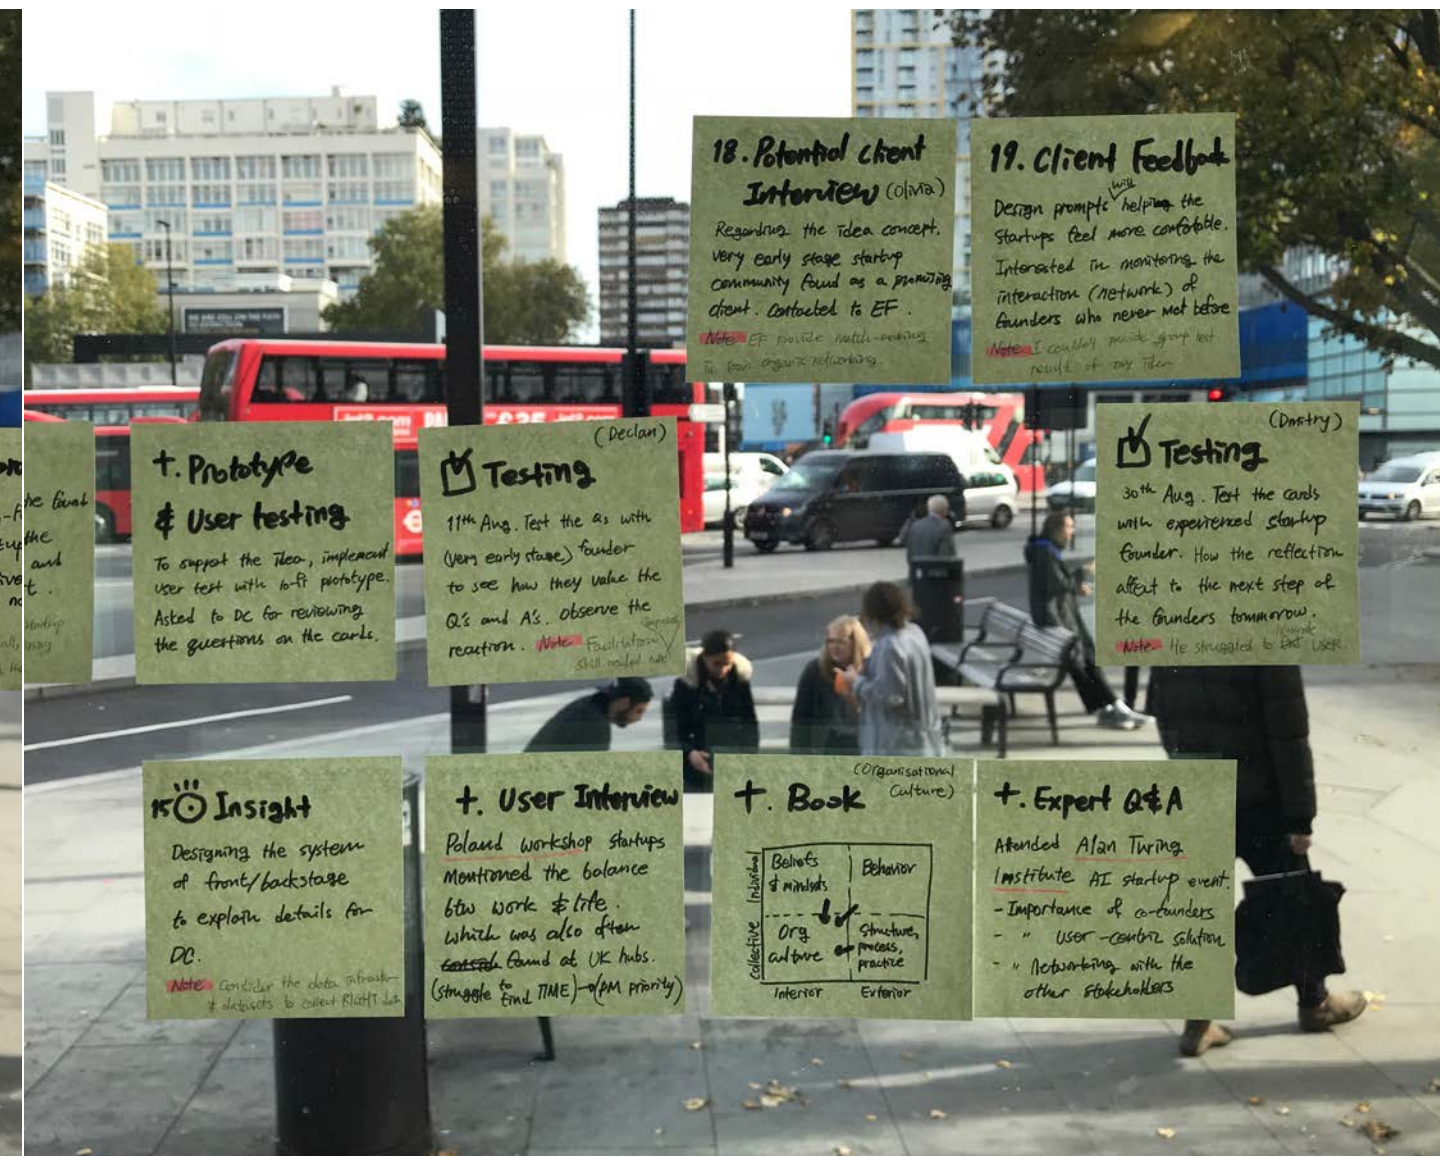 18. Potential client
Interview (Olivia)
Regarding the idea concept.
very early stage startup
community found as a promising
client. contacted to EF.
Note EF provide match-making
organic networking.
19. Client Feedback
Design prompts will helping the
startups feel more comfortable.
Interested in monitoring the
interaction (network) of
founders who never met before
Note I couldn't provide group test
result of my idea
he found
the
and
t.
+. Prototype
& User testing
To support the idea, implement
user test with lo-fi prototype.
Asked to DC for reviewing
the questions on the cards.
(Declan)
Testing
11th Aug. Test the Qs with
(very early stage) founder
to see how they value the
Q's and A's. observe the
reaction. Note Facilitation
skill needed
(Dmitry)
Testing
30th Aug. Test the cards
with experienced startup
founder. How the reflection
affect to the next step of
the founders tommorow.
Note He struggled to find user.
15 Insight
Designing the system
of front/backstage
to explain details for
DC.
Note Consider the data infrastr-
& datasets to collect RIGHT data
+. User Interview
Poland workshop startups
mentioned the balance
btw work & life.
which was also often
found at UK hubs.
(struggle to find TIME)→(PM priority)
+. Book (Organisational
Culture)
Individual
Beliefs
& mindsets
Behavior
Collective
Org
culture
Structure,
process,
practice
Interior Exterior
+. Expert Q&A
Attended Alan Turing
Institute AI startup event.
- Importance of co-founders
- " user-centric solution
- " Networking with the
other stakeholders